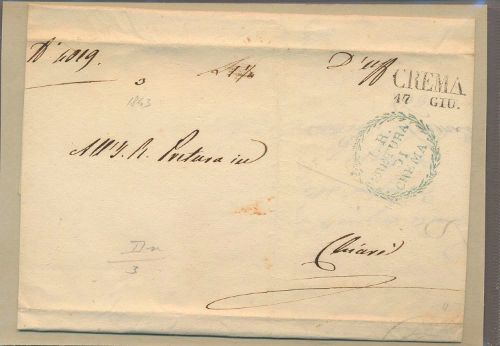 N° 2019.
D'uff
CREMA
17 GIU.
3
1843
I. R.
PRETURA
DI
CREMA
All'I. R. Pretura in
Chiari
3